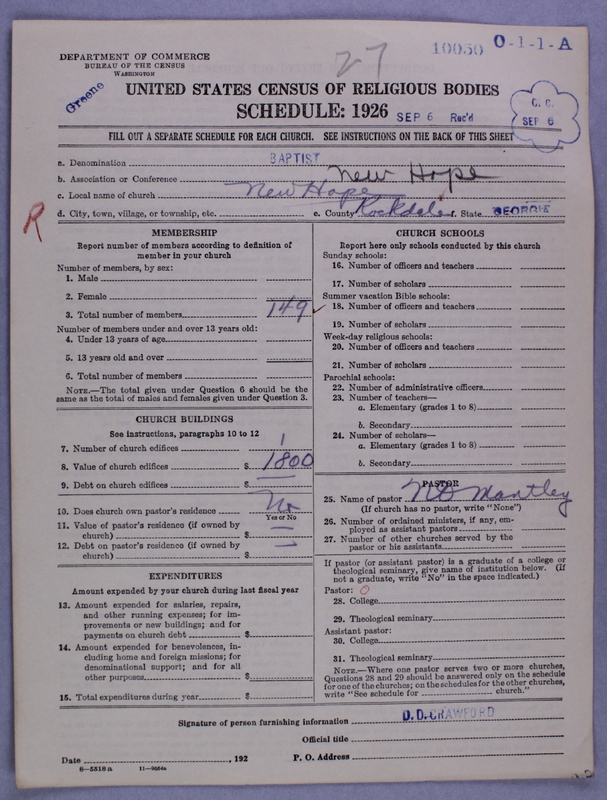 27 10050 O-1-1-A
DEPARTMENT OF COMMERCE
BUREAU OF THE CENSUS
WASHINGTON
Greene
UNITED STATES CENSUS OF RELIGIOUS BODIES
SCHEDULE: 1926 SEP 6 Rec'd
C. C.
SEP 6
FILL OUT A SEPARATE SCHEDULE FOR EACH CHURCH. SEE INSTRUCTIONS ON THE BACK OF THIS SHEET
a. Denomination BAPTIST
b. Association or Conference New Hope
c. Local name of church New Hope
d. City, town, village, or township, etc. e. County Rockdale f. State GEORGIA
R
MEMBERSHIP
Report number of members according to definition of
member in your church
Number of members, by sex:
1. Male
2. Female
3. Total number of members 149 ✓
Number of members under and over 13 years old:
4. Under 13 years of age
5. 13 years old and over
6. Total number of members
NOTE.—The total given under Question 6 should be the
same as the total of males and females given under Question 3.
CHURCH BUILDINGS
See instructions, paragraphs 10 to 12
7. Number of church edifices 1
8. Value of church edifices $ 1800
9. Debt on church edifices $ —
10. Does church own pastor's residence No
Yes or No
11. Value of pastor's residence (if owned by
church) $ —
12. Debt on pastor's residence (if owned by
church) $ —
EXPENDITURES
Amount expended by your church during last fiscal year
13. Amount expended for salaries, repairs,
and other running expenses; for im-
provements or new buildings; and for
payments on church debt $
14. Amount expended for benevolences, in-
cluding home and foreign missions; for
denominational support; and for all
other purposes $
15. Total expenditures during year $
CHURCH SCHOOLS
Report here only schools conducted by this church
Sunday schools:
16. Number of officers and teachers
17. Number of scholars
Summer vacation Bible schools:
18. Number of officers and teachers
19. Number of scholars
Week-day religious schools:
20. Number of officers and teachers
21. Number of scholars
Parochial schools:
22. Number of administrative officers
23. Number of teachers—
a. Elementary (grades 1 to 8)
b. Secondary
24. Number of scholars—
a. Elementary (grades 1 to 8)
b. Secondary
PASTOR
25. Name of pastor ND Mantley
(If church has no pastor, write "None")
26. Number of ordained ministers, if any, em-
ployed as assistant pastors
27. Number of other churches served by the
pastor or his assistants
If pastor (or assistant pastor) is a graduate of a college or
theological seminary, give name of institution below. (If
not a graduate, write "No" in the space indicated.)
Pastor: O
28. College
29. Theological seminary
Assistant pastor:
30. College
31. Theological seminary
NOTE.—Where one pastor serves two or more churches,
Questions 28 and 29 should be answered only on the schedule
for one of the churches; on the schedules for the other churches,
write "See schedule for church."
Signature of person furnishing information D. D. CRAWFORD
Official title
Date , 192 P. O. Address
8—5518a 11—9554a